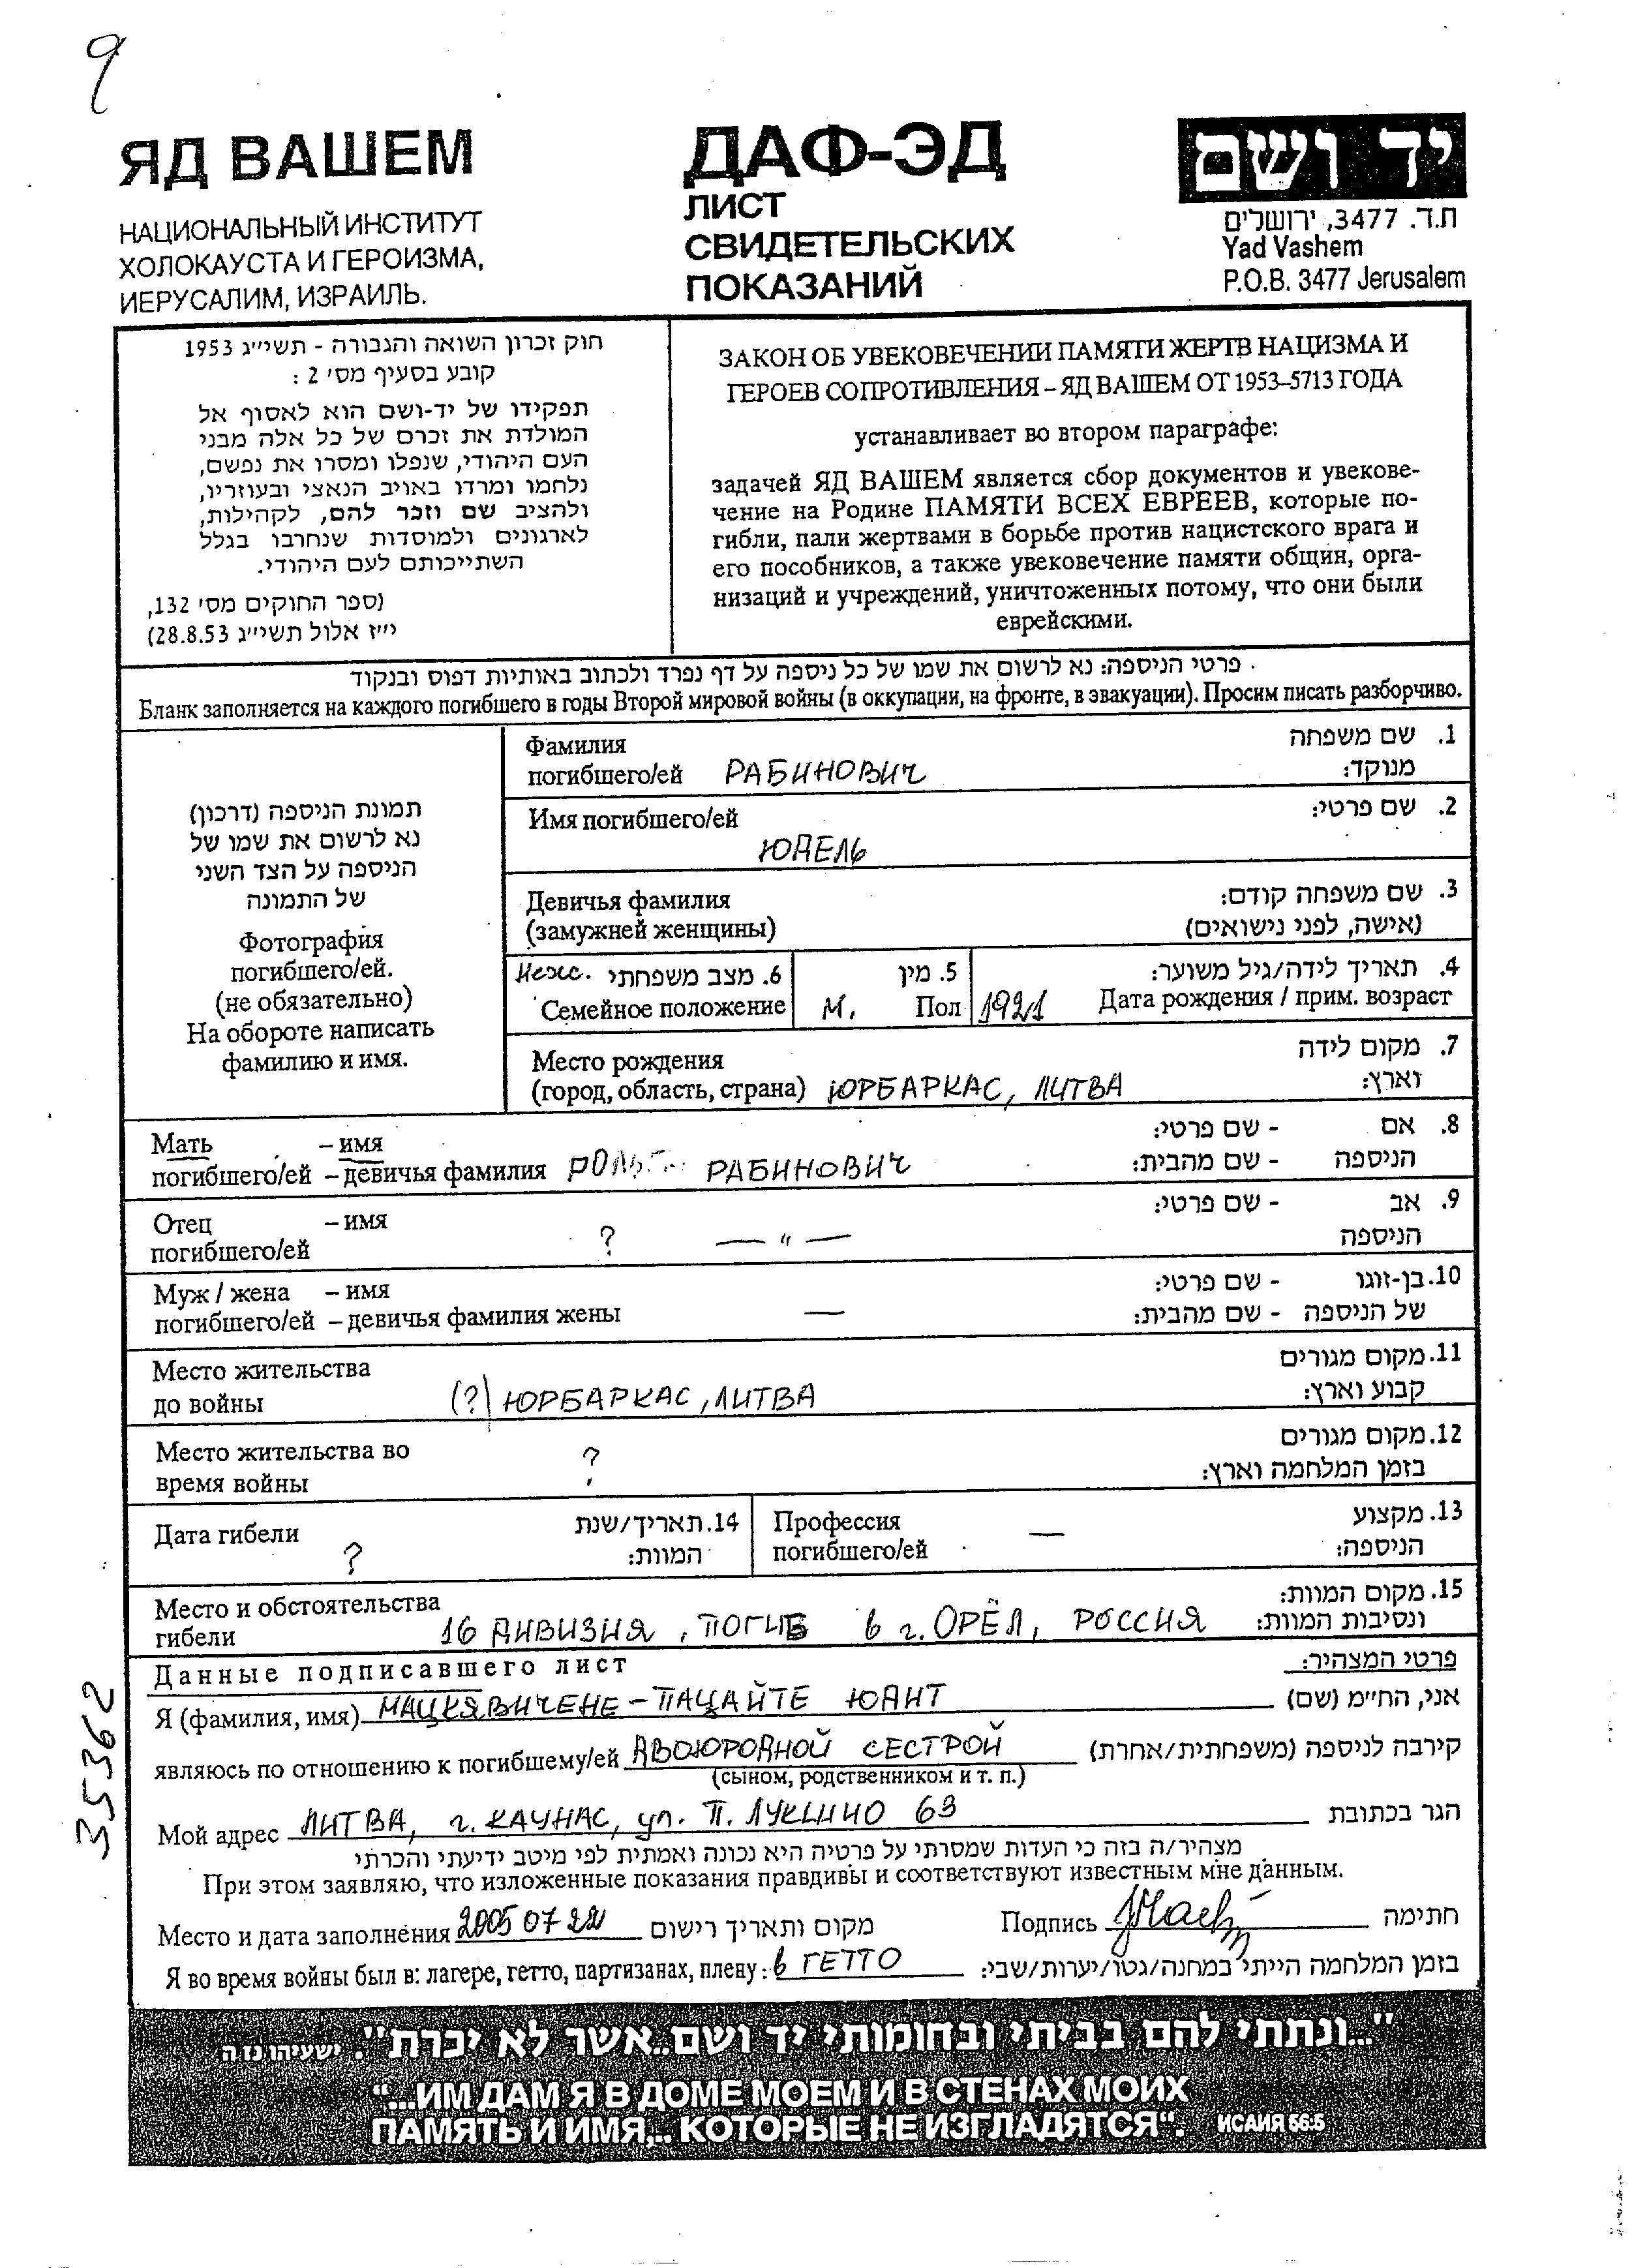 9
ЯД ВАШЕМ
НАЦИОНАЛЬНЫЙ ИНСТИТУТ
ХОЛОКАУСТА И ГЕРОИЗМА,
ИЕРУСАЛИМ, ИЗРАИЛЬ.
ДАФ-ЭД
ЛИСТ
СВИДЕТЕЛЬСКИХ
ПОКАЗАНИЙ
יד ושם
ת.ד. 3477, ירושלים
Yad Vashem
P.O.B. 3477 Jerusalem
חוק זכרון השואה והגבורה - תשי״ג 1953
קובע בסעיף מס׳ 2 :
תפקידו של יד-ושם הוא לאסוף אל
המולדת את זכרם של כל אלה מבני
העם היהודי, שנפלו ומסרו את נפשם,
נלחמו ומרדו באויב הנאצי ובעוזריו,
ולהציב שם וזכר להם, לקהילות,
לארגונים ולמוסדות שנחרבו בגלל
השתייכותם לעם היהודי.
(ספר החוקים מס׳ 132,
י״ז אלול תשי״ג 28.8.53)
ЗАКОН ОБ УВЕКОВЕЧЕНИИ ПАМЯТИ ЖЕРТВ НАЦИЗМА И
ГЕРОЕВ СОПРОТИВЛЕНИЯ – ЯД ВАШЕМ ОТ 1953–5713 ГОДА
устанавливает во втором параграфе:
задачей ЯД ВАШЕМ является сбор документов и увекове-
чение на Родине ПАМЯТИ ВСЕХ ЕВРЕЕВ, которые по-
гибли, пали жертвами в борьбе против нацистского врага и
его пособников, а также увековечение памяти общин, орга-
низаций и учреждений, уничтоженных потому, что они были
еврейскими.
פרטי הניספה: נא לרשום את שמו של כל ניספה על דף נפרד ולכתוב באותיות דפוס ובנקוד
Бланк заполняется на каждого погибшего в годы Второй мировой войны (в оккупации, на фронте, в эвакуации). Просим писать разборчиво.
תמונת הניספה (דרכון)
נא לרשום את שמו של
הניספה על הצד השני
של התמונה
Фотография
погибшего/ей.
(не обязательно)
На обороте написать
фамилию и имя.
Фамилия 1. שם משפחה
погибшего/ей РАБИНОВИЧ מנוקד:
Имя погибшего/ей 2. שם פרטי:
ЮДЕЛЬ
Девичья фамилия 3. שם משפחה קודם:
(замужней женщины) (אישה, לפני נישואים)
Неж. 6. מצב משפחתי 5. מין 4. תאריך לידה/גיל משוער:
Семейное положение М. Пол 1921 Дата рождения / прим. возраст
Место рождения 7. מקום לידה
(город, область, страна) ЮРБАРКАС, ЛИТВА וארץ:
Мать – имя 8. אם - שם פרטי:
погибшего/ей – девичья фамилия РАБИНОВИЧ הניספה - שם מהבית:
Отец – имя 9. אב - שם פרטי:
погибшего/ей ? — " — הניספה
Муж / жена – имя 10. בן-זוגו - שם פרטי:
погибшего/ей – девичья фамилия жены — של הניספה - שם מהבית:
Место жительства 11. מקום מגורים
до войны (?) ЮРБАРКАС, ЛИТВА קבוע וארץ:
Место жительства во 12. מקום מגורים
время войны ? בזמן המלחמה וארץ:
Дата гибели 14. תאריך/שנת Профессия — 13. מקצוע
? המוות: погибшего/ей הניספה:
Место и обстоятельства 15. מקום המוות:
гибели 16 ДИВИЗИЯ, ПОГИБ в г. ОРЁЛ, РОССИЯ ונסיבות המוות:
Данные подписавшего лист פרטי המצהיר:
Я (фамилия, имя) МАЦКЯВИЧЕНЕ – ПАЦАЙТЕ ЮДИТ אני, הח״מ (שם)
являюсь по отношению к погибшему/ей ДВОЮРОДНОЙ СЕСТРОЙ קירבה לניספה (משפחתית/אחרת)
(сыном, родственником и т. п.)
Мой адрес ЛИТВА, г. КАУНАС, ул. П. ЛУКШИО 63 הגר בכתובת
מצהיר/ה בזה כי העדות שמסרתי על פרטיה היא נכונה ואמתית לפי מיטב ידיעתי והכרתי
При этом заявляю, что изложенные показания правдивы и соответствуют известным мне данным.
Место и дата заполнения 2005 07 22 מקום ותאריך רישום Подпись חתימה
Я во время войны был в: лагере, гетто, партизанах, плену: в ГЕТТО בזמן המלחמה הייתי במחנה/גטו/יערות/שבי:
35362
"...ונתתי להם בביתי ובחומותי יד ושם..אשר לא יכרת". ישעיהו נו ה
“...ИМ ДАМ Я В ДОМЕ МОЕМ И В СТЕНАХ МОИХ
ПАМЯТЬ И ИМЯ,.. КОТОРЫЕ НЕ ИЗГЛАДЯТСЯ“. ИСАИЯ 56:5